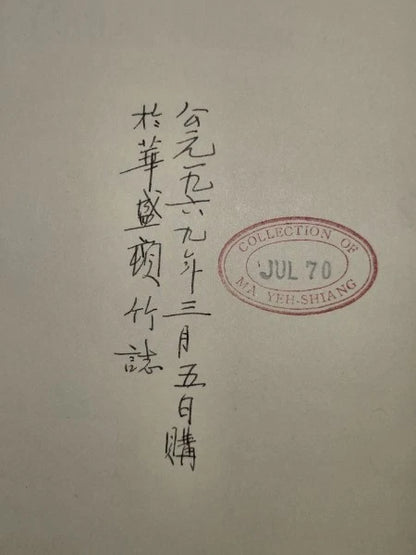 公元一九六九年三月五日購
於華盛頓竹誌
COLLECTION OF
JUL 70
MA YEH-SHIANG